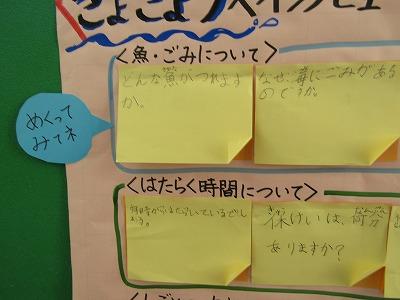 めくって
みてネ
<魚・ごみについて>
どんな魚がつれます
か。
なぜ、海にごみがある
のですか。
<はたらく時間について>
何時からはたらいているでし
ょう。
きゅう なんぷん
休けいは、何分
ありますか?